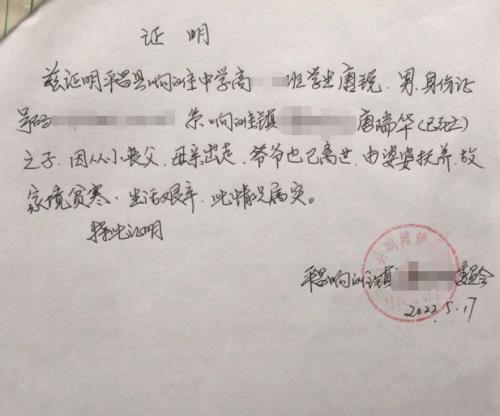 证 明
兹证明平昌县响滩中学高 班学生唐锐,男,身份证
号码 系响滩镇 唐瑞华(已故)
之子,因从小丧父,母亲出走,爷爷也已离世,由婆婆抚养,故
家境贫寒,生活艰辛,此情况属实。
特此证明
平昌响滩镇 委会
2022.5.17